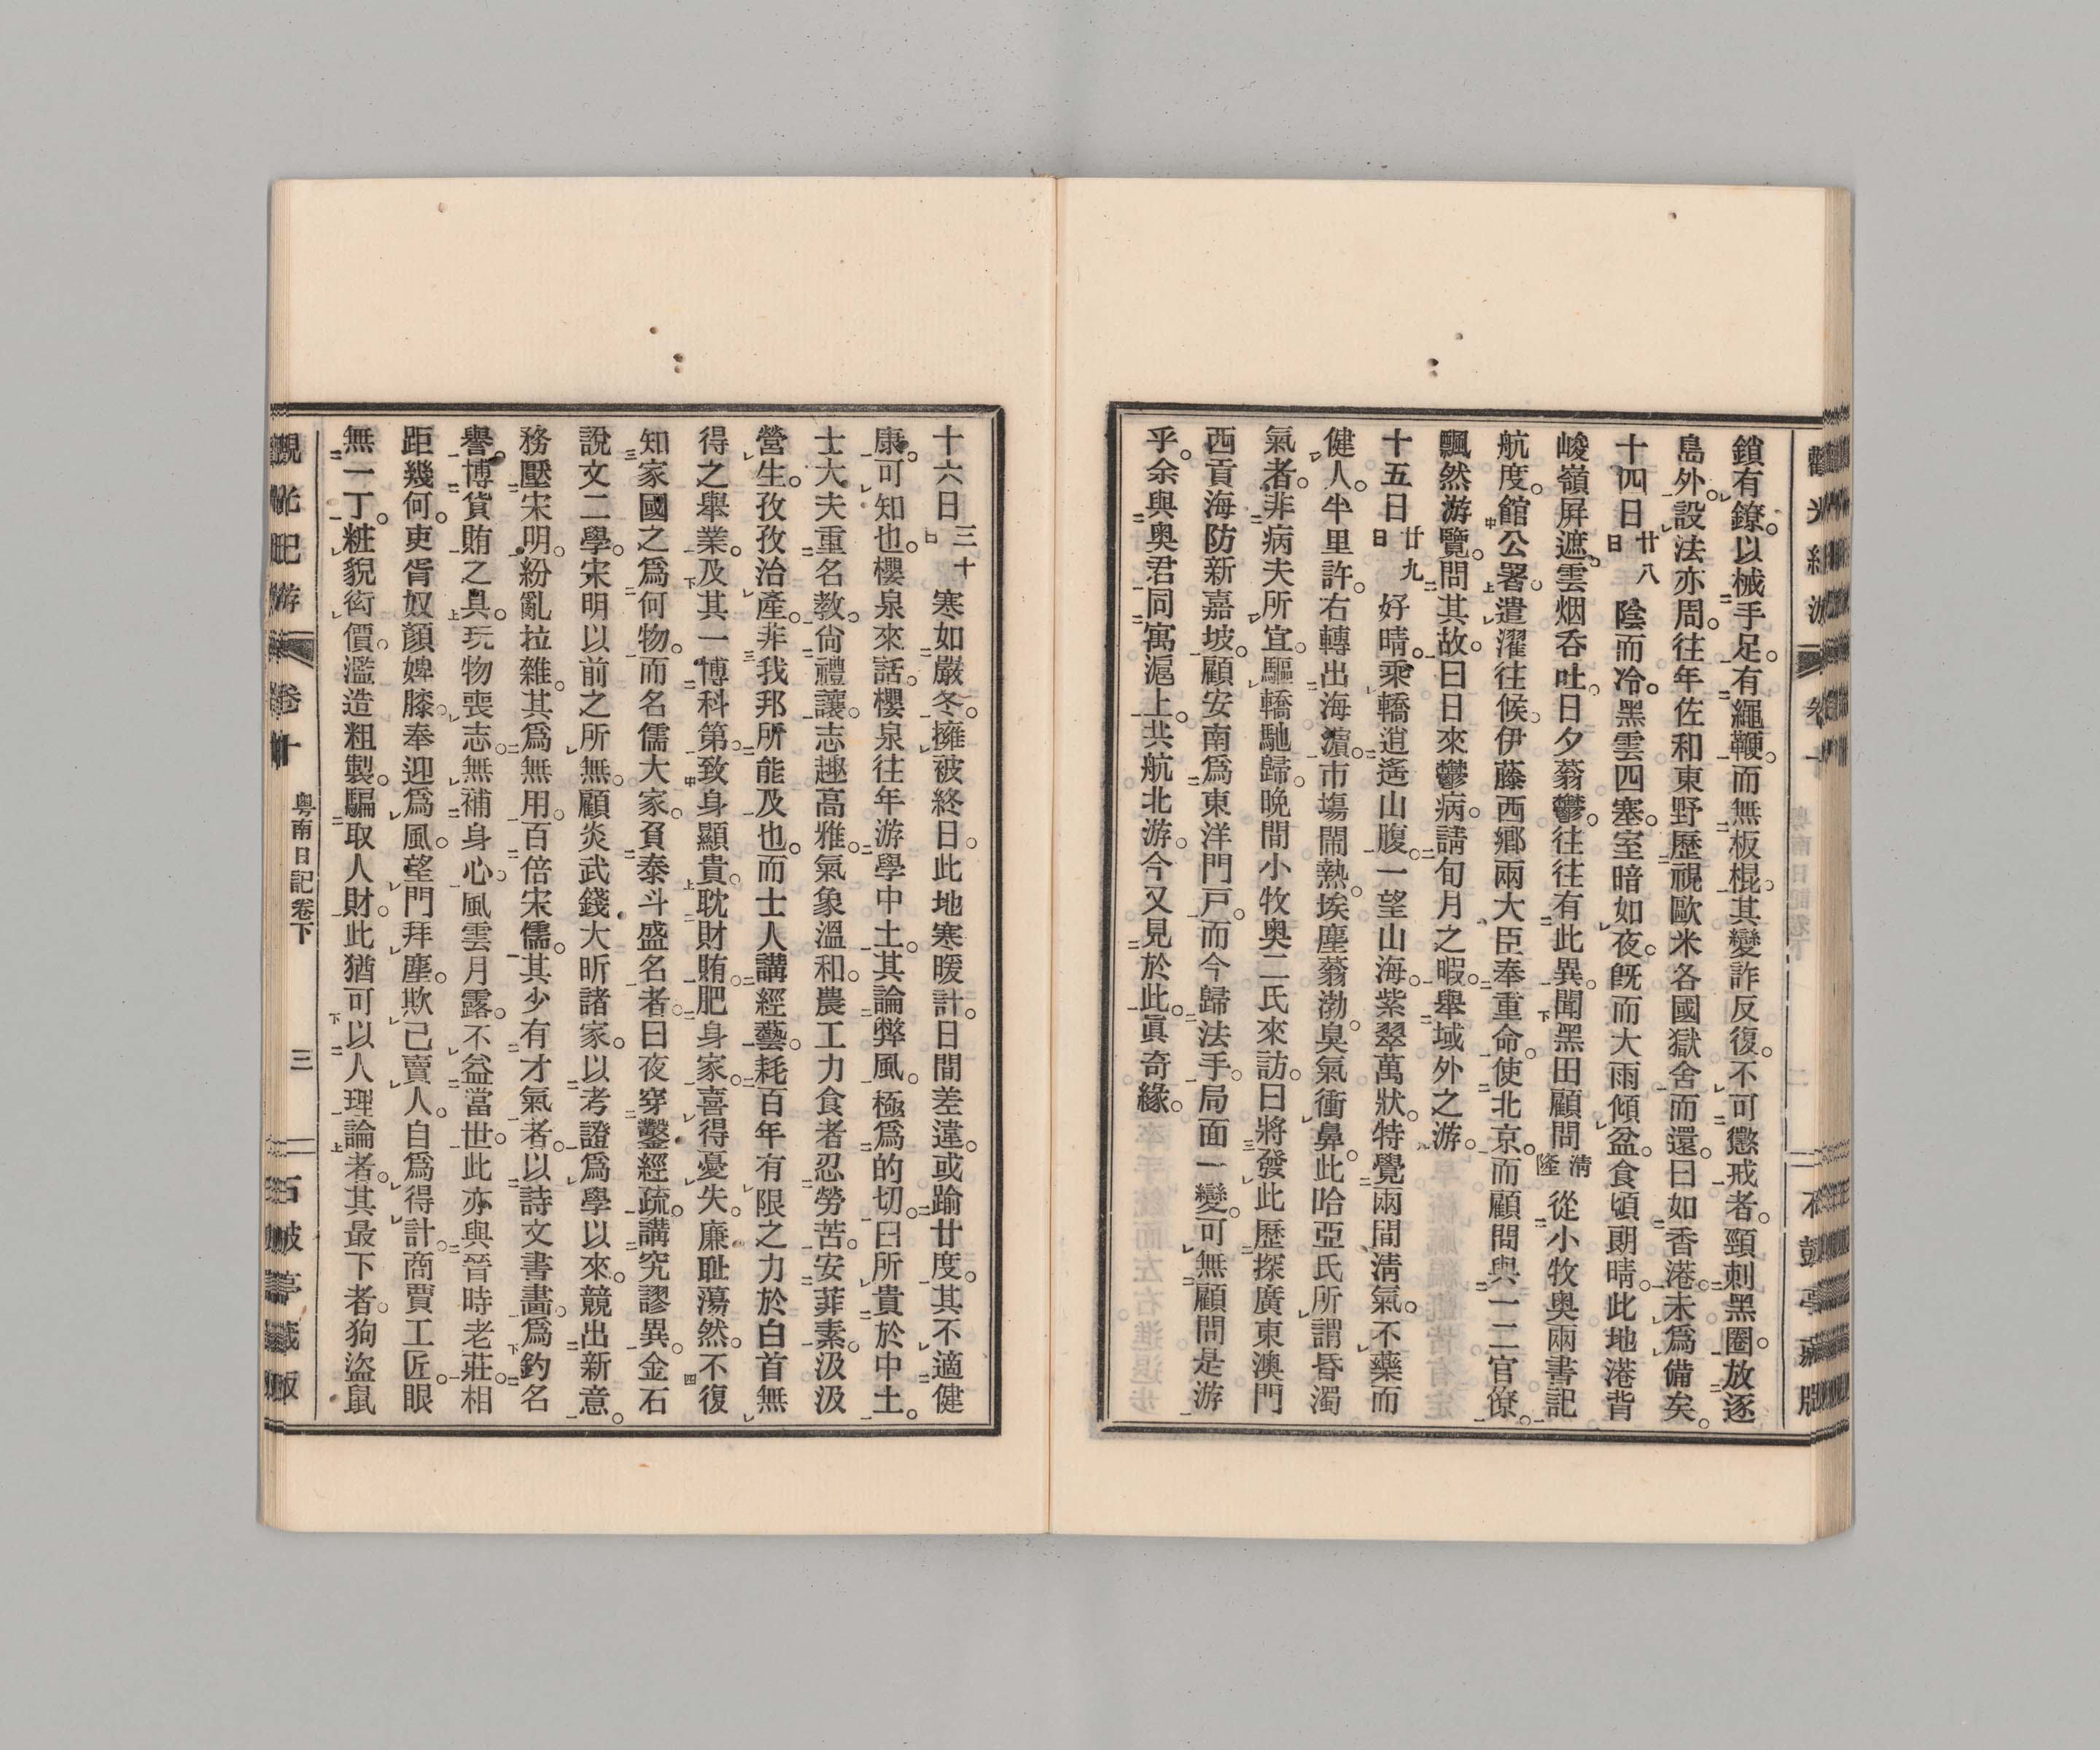 鎖有鐐。以械手足。有繩鞭。而無板棍。其變詐反復。不可懲戒者。頸刺黑圈。放逐
島外。設法亦周。往年佐和東野歷視歐米各國獄舍而還。曰如香港。未爲備矣。
十四日廿八日陰而冷。黑雲四塞。室暗如夜。旣而大雨傾盆。食頃朗晴。此地港背
峻嶺屏遮。雲烟呑吐。日夕蓊鬱。往往有此異。聞黑田顧問淸隆從小牧奧兩書記
航度。館公署。遣濯往候。伊藤西鄉兩大臣奉重命。使北京。而顧問與一二官僚。
飄然游覽。問其故。曰日來鬱病。請旬月之暇。舉域外之游。
十五日廿九日好晴。乘轎逍遙山腹。一望山海。紫翠萬狀。特覺兩間淸氣。不藥而
健人。半里許。右轉出海濱。市塲鬧熱。埃塵蓊渤。臭氣衝鼻。此哈亞氏所謂昏濁
氣者。非病夫所宜。驅轎馳歸。晩間小牧奧二氏來訪。曰將發此歷探廣東澳門
西貢海防新嘉坡。顧安南爲東洋門戶。而今歸法手。局面一變。可無顧問是游
乎。余與奧君同寓滬上。共航北游。今又見於此。眞奇緣。
十六日三十日寒如嚴冬。擁被終日。此地寒暖計。日間差違。或踰廿度。其不適健
康。可知也。櫻泉來話。櫻泉往年游學中土。其論弊風。極爲的切。曰所貴於中土。
士大夫重名敎。尙禮讓。志趣高雅。氣象溫和。農工力食者忍勞苦。安菲素。汲汲
營生。孜孜治產。非我邦所能及也。而士人講經藝。耗百年有限之力於白首無
得之舉業。及其一博科第。致身顯貴。耽財賄。肥身家。喜得憂失。廉耻蕩然。不復
知家國之爲何物。而名儒大家。負泰斗盛名者。日夜穿鑿經疏。講究謬異。金石
說文二學。宋明以前之所無。顧炎武錢大昕諸家。以考證爲學以來。競出新意。
務壓宋明。紛亂拉雜。其爲無用。百倍宋儒。其少有才氣者。以詩文書畵。爲釣名
譽博貨賄之具。玩物喪志。無補身心。風雲月露。不益當世。此亦與晉時老莊相
距幾何。吏胥奴顏婢膝。奉迎爲風。望門拜塵。欺己賣人。自爲得計。商賈工匠。眼
無一丁。粧貌衒價。濫造粗製。騙取人財。此猶可以人理論者。其最下者。狗盜鼠
粤南日記卷下
三